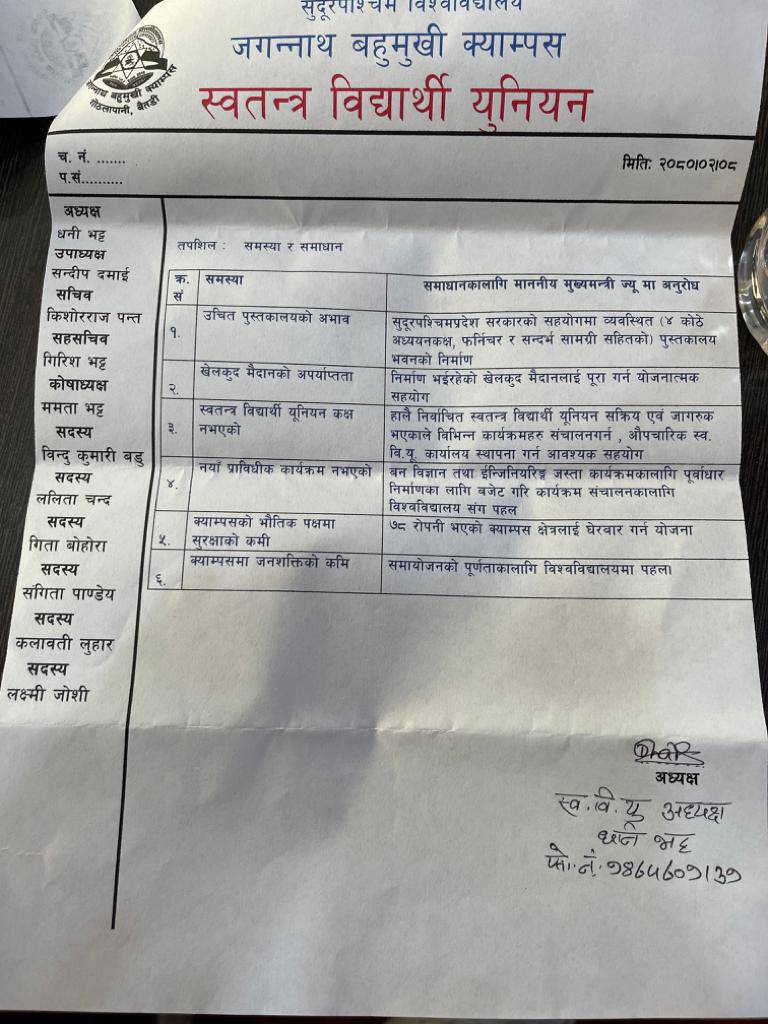 सुदूरपश्चिम विश्वविद्यालय
जगन्नाथ बहुमुखी क्याम्पस
स्वतन्त्र विद्यार्थी युनियन
जगन्नाथ बहुमुखी क्याम्पस
गोठलापानी, बैतडी
च. नं. .......
प.सं..........
मिति: २०८०।०२।०८
अध्यक्ष
धनी भट्ट
उपाध्यक्ष
सन्दीप दमाई
सचिव
किशोरराज पन्त
सहसचिव
गिरिश भट्ट
कोषाध्यक्ष
ममता भट्ट
सदस्य
विन्दु कुमारी बडु
सदस्य
ललिता चन्द
सदस्य
गिता बोहोरा
सदस्य
संगिता पाण्डेय
सदस्य
कलावती लुहार
सदस्य
लक्ष्मी जोशी
तपशिल : समस्या र समाधान
क्र.सं समस्या समाधानकालागि माननीय मुख्यमन्त्री ज्यू मा अनुरोध
१. उचित पुस्तकालयको अभाव सुदूरपश्चिमप्रदेश सरकारको सहयोगमा व्यवस्थित (४ कोठे
अध्ययनकक्ष, फर्निचर र सन्दर्भ सामग्रि सहितको) पुस्तकालय
भवनको निर्माण
२. खेलकुद मैदानको अपर्याप्तता निर्माण भईरहेको खेलकुद मैदानलाई पूरा गर्न योजनात्मक
सहयोग
३. स्वतन्त्र विद्यार्थी यूनियन कक्ष हालै निर्वाचित स्वतन्त्र विद्यार्थी यूनियन सक्रिय एवं जागरुक
नभएको भएकाले विभिन्न कार्यक्रमहरु संचालनगर्न , औपचारिक स्व.
वि.यू. कार्यालय स्थापना गर्न आवश्यक सहयोग
४. नयाँ प्राविधीक कार्यक्रम नभएको बन विज्ञान तथा ईन्जिनियरिङ्ग जस्ता कार्यक्रमकालागि पूर्वाधार
निर्माणका लागि बजेट गरि कार्यक्रम संचालनकालागि
विश्वविद्यालय संग पहल
५. क्याम्पसको भौतिक पक्षमा ७८ रोपनी भएको क्याम्पस क्षेत्रलाई घेरवार गर्न योजना
सुरक्षाको कमी
६. क्याम्पसमा जनशक्तिको कमि समायोजनको पूर्णताकालागि विश्वविद्यालयमा पहल।
अध्यक्ष
स्व.वि.यु अध्यक्ष
धनि भट्ट
फो.नं.